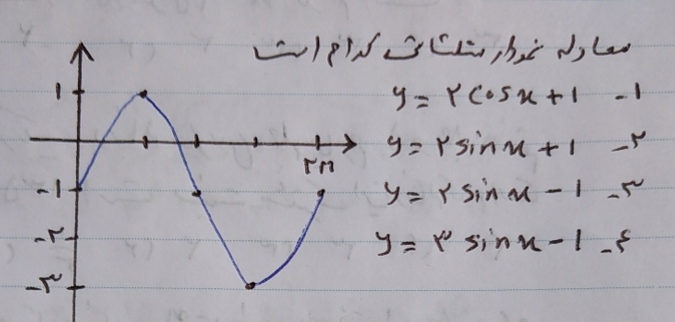 معادله نمودار مثلثاتی کدام است
۱- y = ۲cosx + ۱
۲- y = ۲sinx + ۱
۳- y = ۲sinx - ۱
۴- y = ۳sinx - ۱
۱
-۱
-۲
-۳
۲π